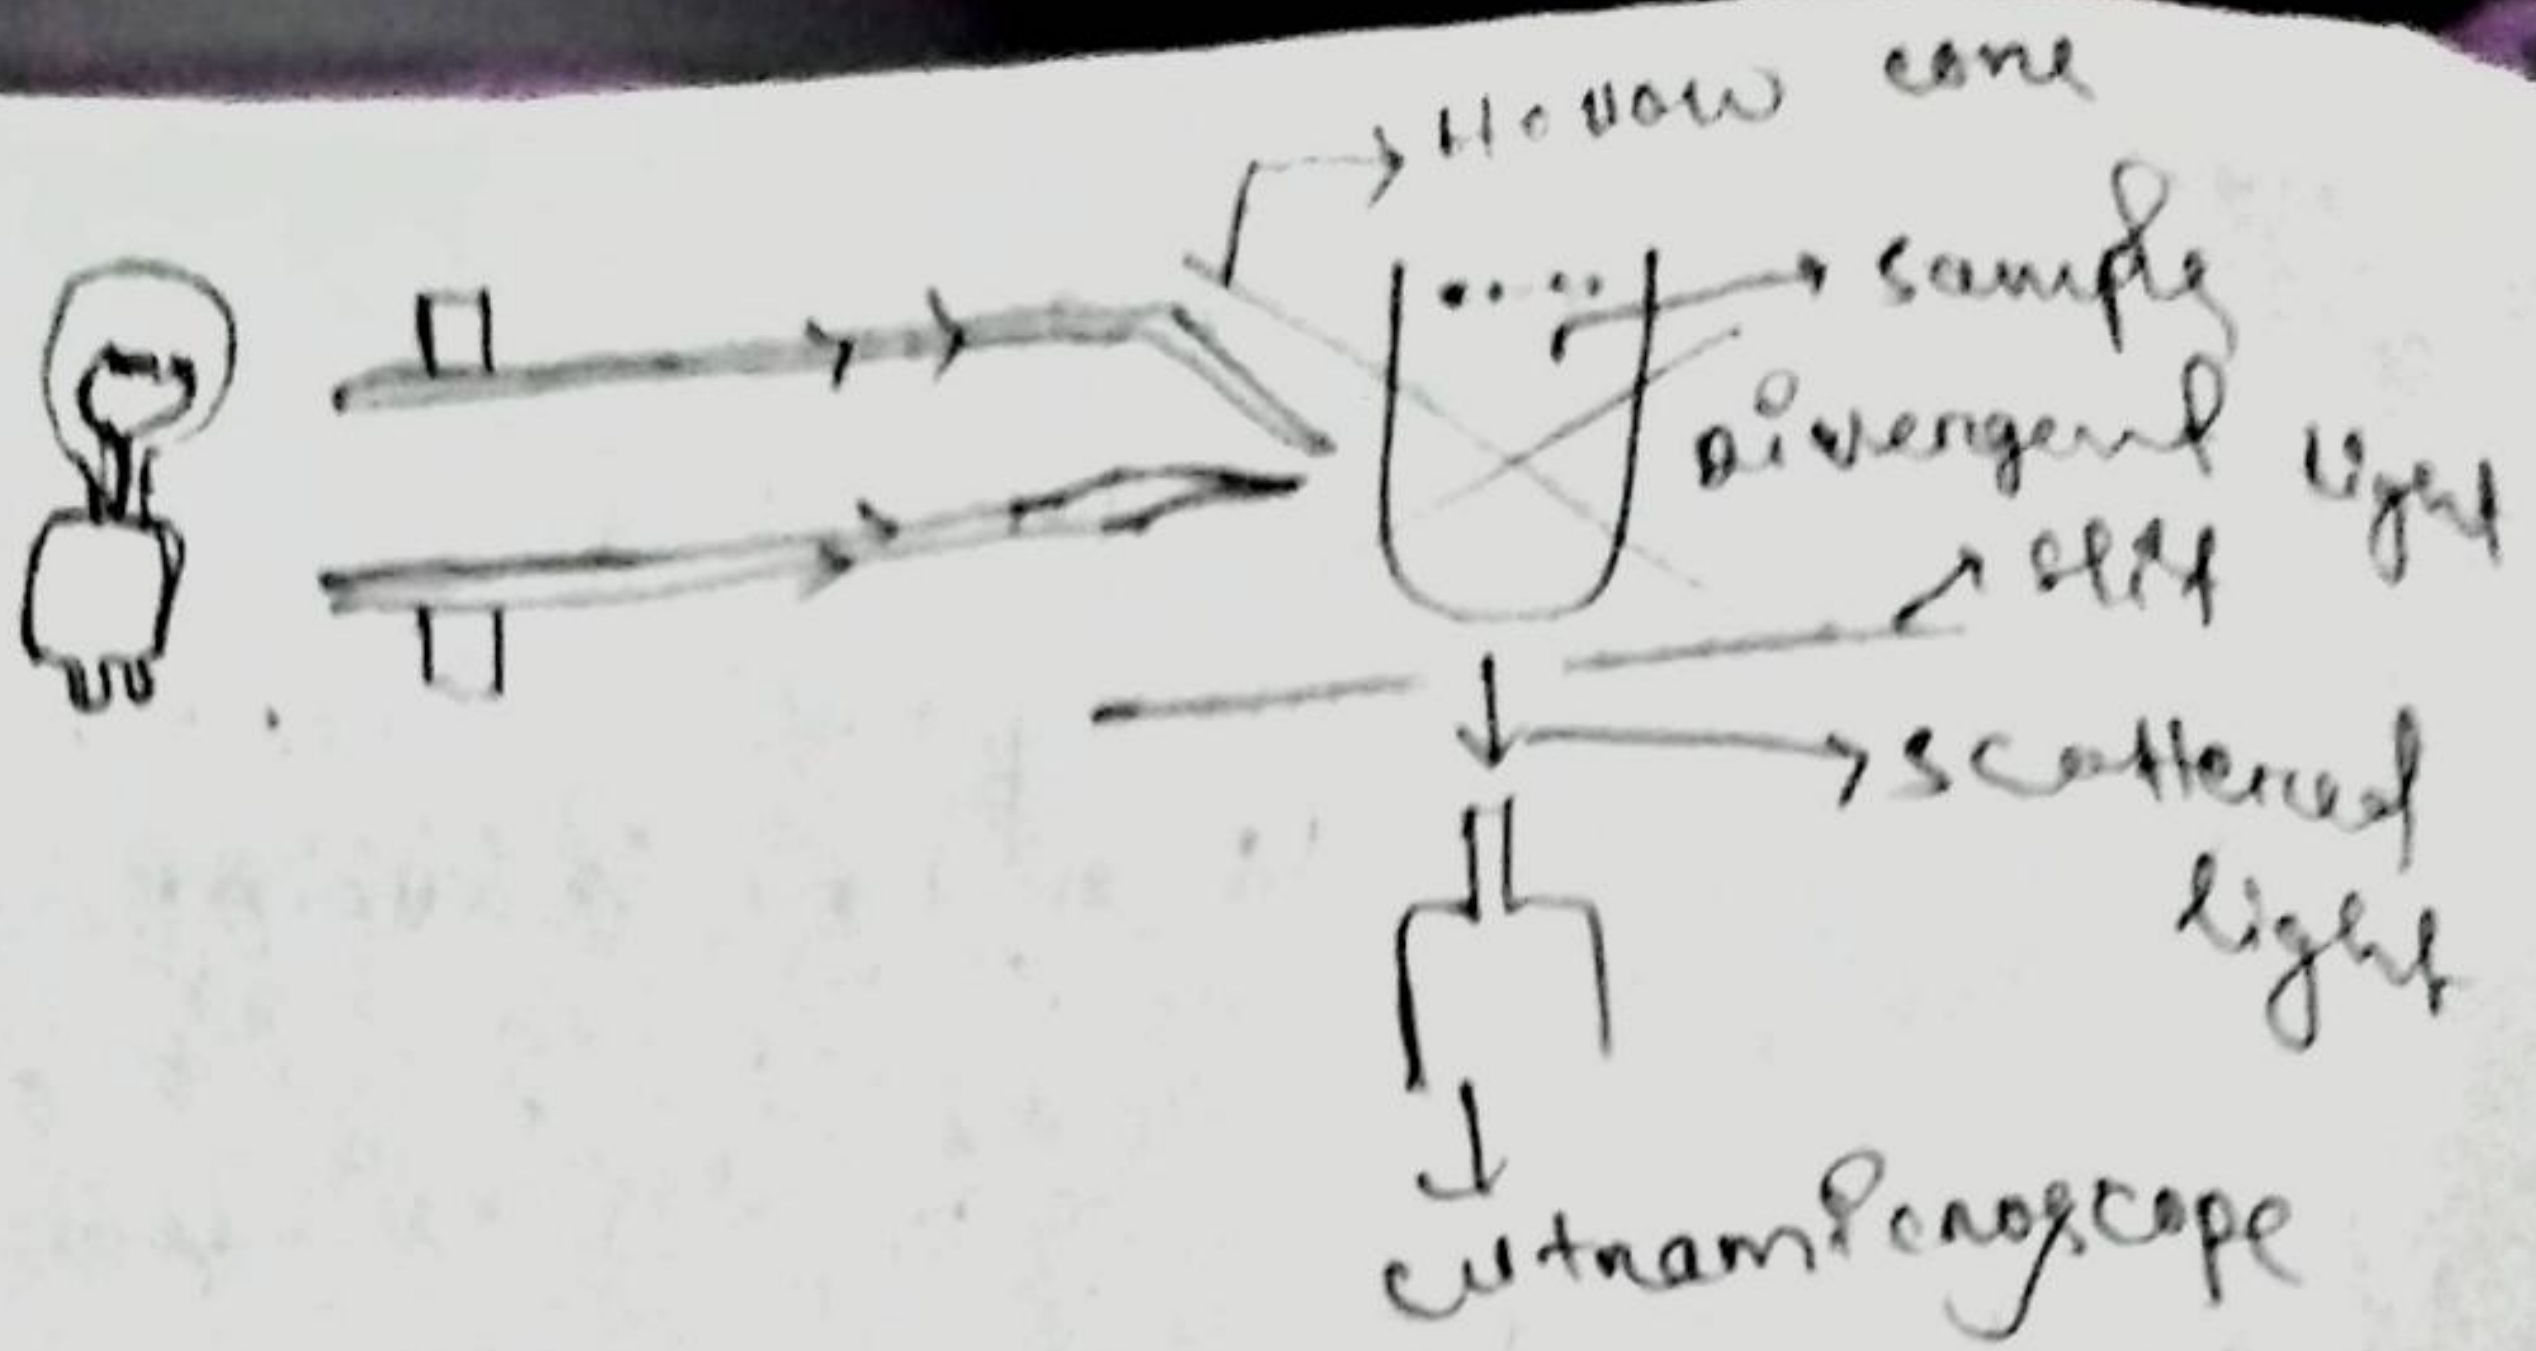 Hollow cone
sample
Divergent light
slit
scattered
light
ultramicroscope